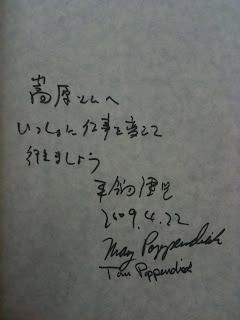 高原さんへ
いっしょに仕事を変えて
行きましょう
平鍋健児
2009.4.22
Mary Poppendieck
Tom Poppendieck